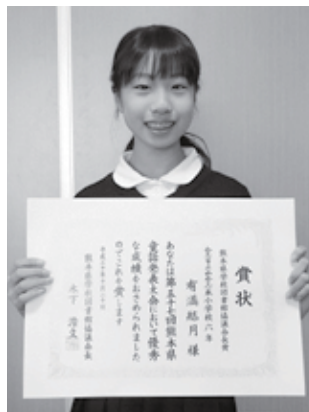 賞状
熊本県学校図書館協議会長賞
小学校六年
有満結月様
あなたは第五十七回熊本県
童話発表大会において優秀
な成績をおさめられました
のでこれを賞します
平成二十年十月二十日
熊本県学校図書館協議会長